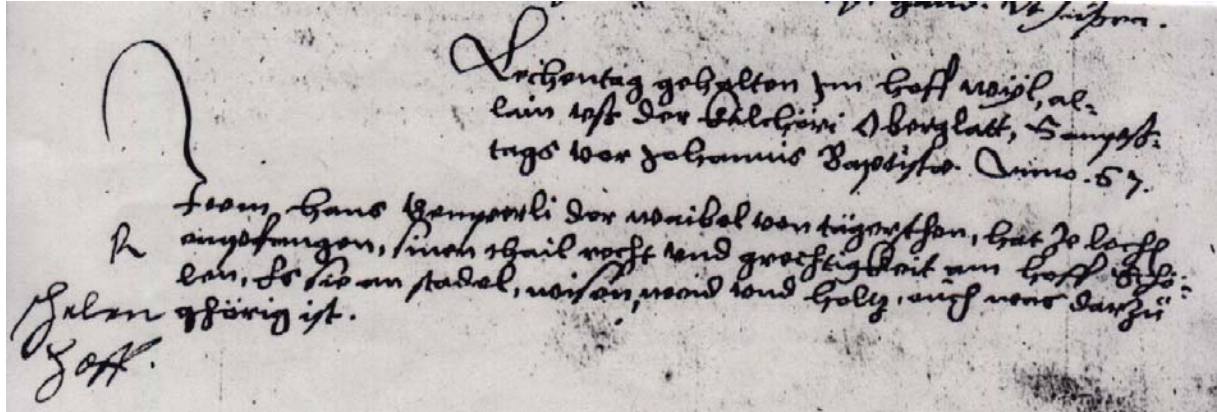 Vt supra.
Lechentag gehalten Im hoff wyl, al-
lain vss der kilchöri Oberglatt, Sampst-
tags vor Johannis Baptistæ. Anno. 67.
Item Hans der waibel von tägerschen, hat ze lechen
R empfangen, sinen thail recht vnd grechtigkeit am hoff Schö-
len, Es sie an stadel, wisen, waid vnd holtz, auch was darzů
ghörig ist.
Schelen
Hoff.